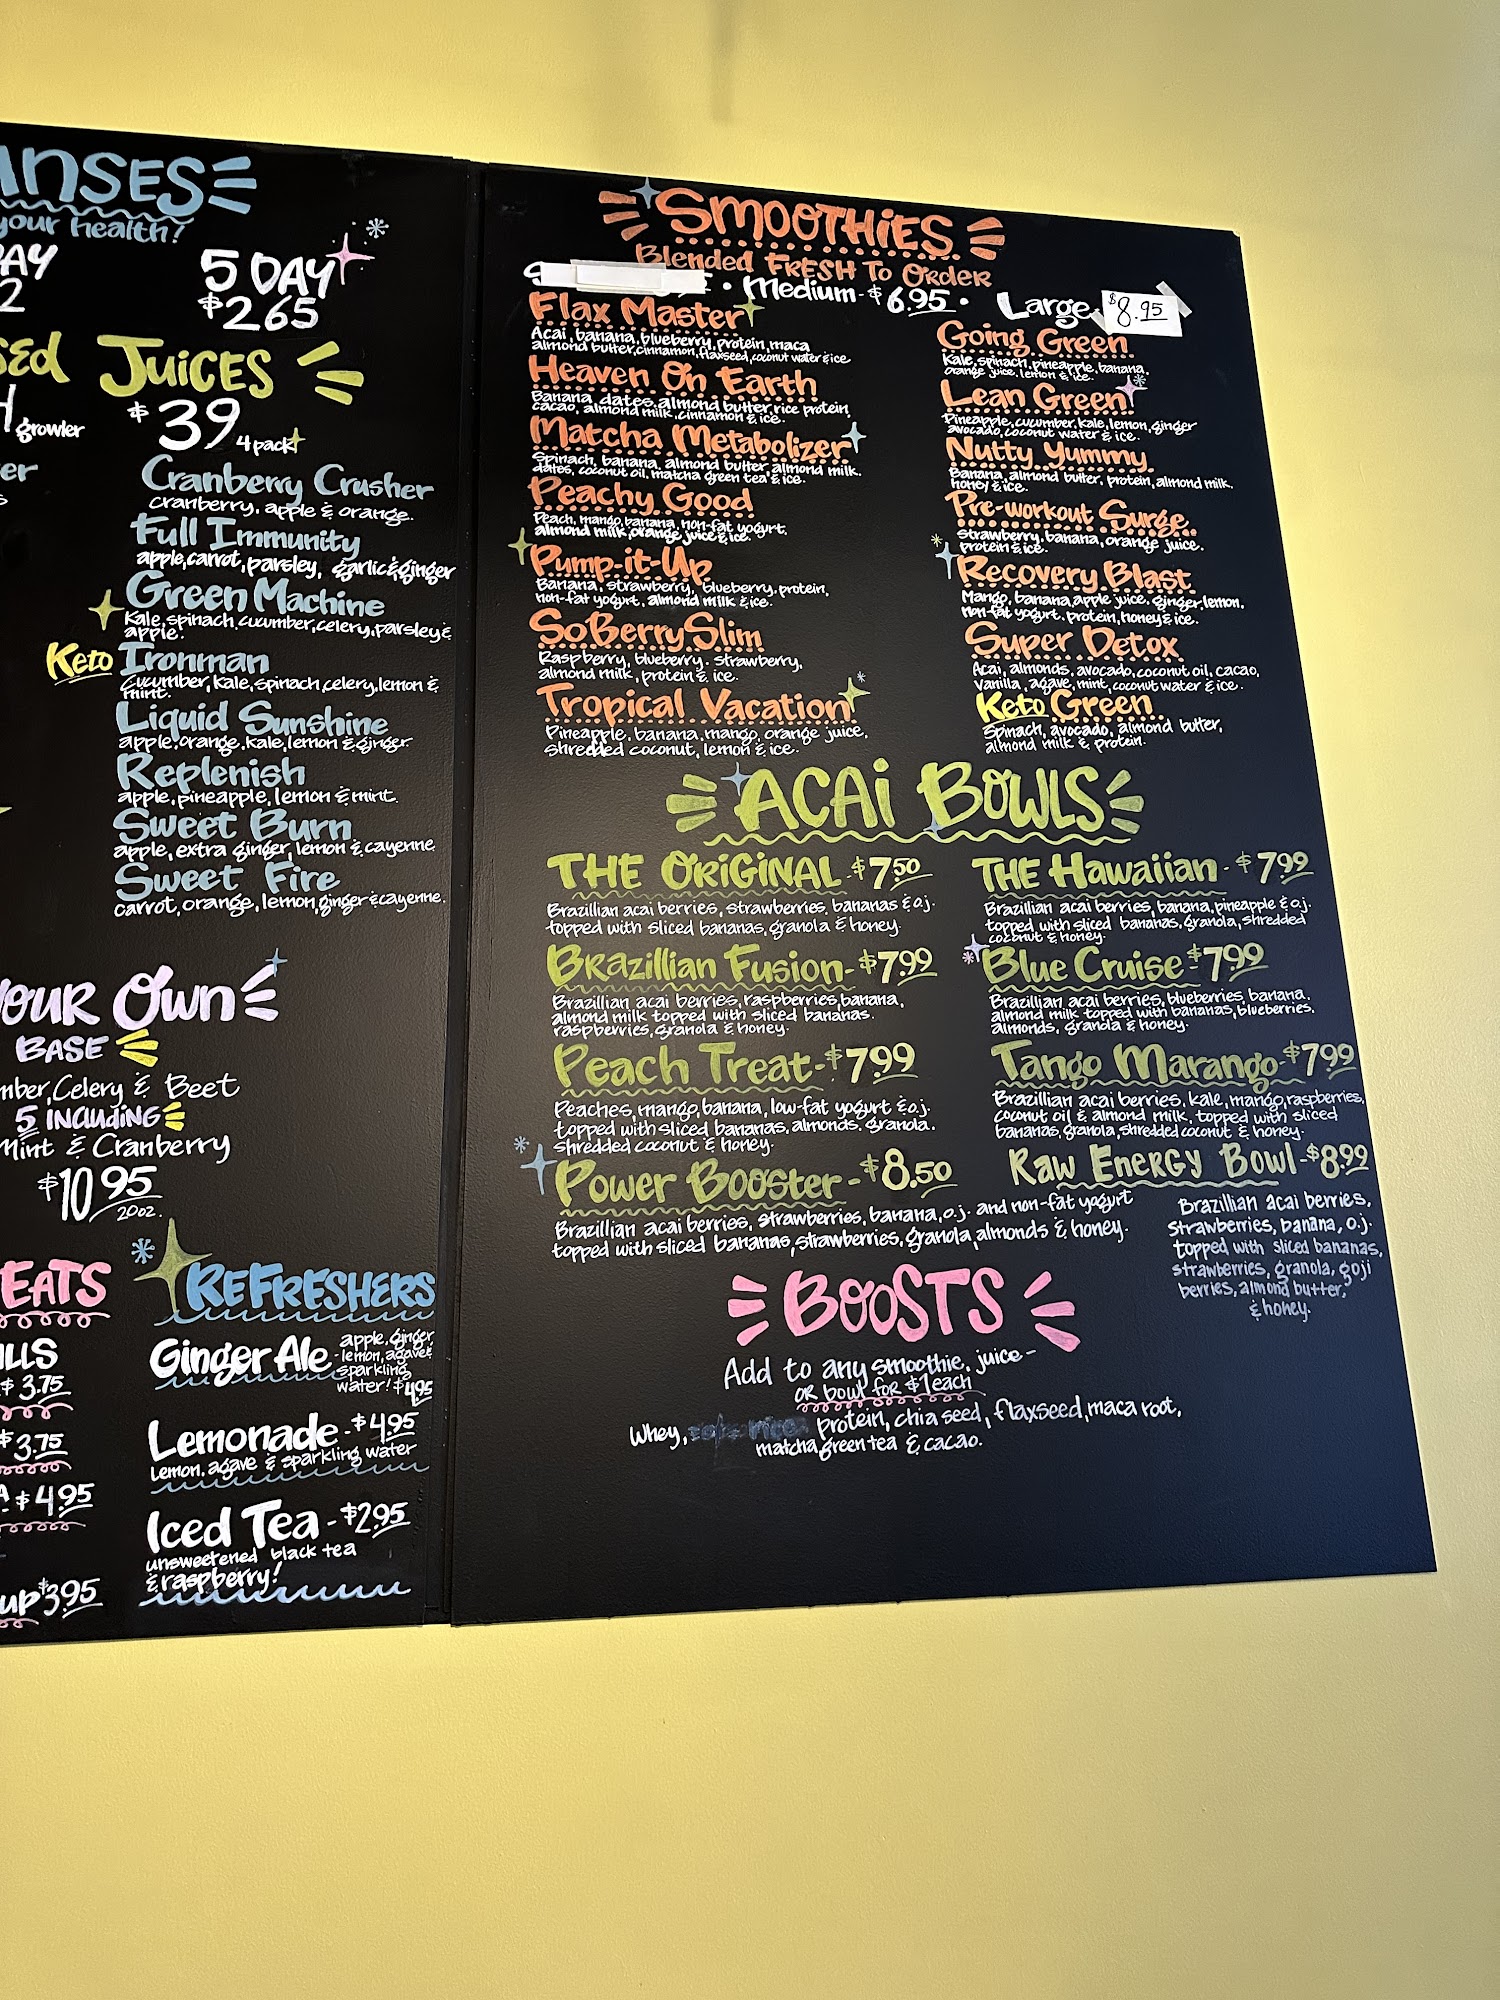 your health?
5 DAY
$265
JUICES
$39 4 pack
growler
Cranberry Crusher
cranberry, apple & orange.
Full Immunity
apple, carrot, parsley, garlic & ginger
Green Machine
Kale, spinach, cucumber, celery, parsley &
apple.
Keto Ironman
cucumber, kale, spinach, celery, lemon &
mint.
Liquid Sunshine
apple, orange, kale, lemon & ginger
Replenish
apple, pineapple, lemon & mint.
Sweet Burn
apple, extra ginger, lemon & cayenne
Sweet Fire
carrot, orange, lemon, ginger & cayenne.
Own
BASE
Celery & Beet
5 INCLUDING
Mint & Cranberry
$10.95
20oz.
$3.75
$3.75
$4.95
$3.95
REFRESHERS
Ginger Ale
apple, ginger,
lemon, agave &
sparkling
water! $4.95
Lemonade - $4.95
Lemon, agave & sparkling water
Iced Tea - $2.95
unsweetened black tea
& raspberry!
SMOOTHIES
Blended FRESH To Order
• Medium - $6.95 • Large $8.95
Flax Master
Acai, banana, blueberry, protein, maca
almond butter, cinnamon, flaxseed, coconut water & ice
Heaven On Earth
Banana, dates, almond butter, rice protein,
cacao, almond milk, cinnamon & ice.
Matcha Metabolizer
Spinach, banana, almond butter, almond milk.
dates, coconut oil, matcha green tea & ice.
Peachy Good
Peach, mango, banana, non-fat yogurt.
almond milk, orange juice & ice.
Pump-it-Up
Banana, strawberry, blueberry, protein,
non-fat yogurt, almond milk & ice.
SoBerrySlim
Raspberry, blueberry, strawberry,
almond milk, protein & ice.
Tropical Vacation
Pineapple, banana, mango, orange juice,
shredded coconut, lemon & ice.
Going Green
Kale, spinach, pineapple, banana,
orange juice, lemon & ice.
Lean Green
Pineapple, cucumber, kale, lemon, ginger
avocado, coconut water & ice.
Nutty Yummy
Banana, almond butter, protein, almond milk,
honey & ice.
Pre-workout Surge
Strawberry, banana, orange juice.
protein & ice.
Recovery Blast
Mango, banana, apple juice, ginger, lemon,
non-fat yogurt, protein, honey & ice.
Super Detox
Acai, almonds, avocado, coconut oil, cacao,
vanilla, agave, mint, coconut water & ice.
Keto Green
Spinach, avocado, almond butter,
almond milk & protein.
ACAI BOWLS
THE ORIGINAL - $7.50
Brazillian acai berries, strawberries, bananas & o.j.
topped with sliced bananas, granola & honey.
Brazillian Fusion - $7.99
Brazillian acai berries, raspberries, banana,
almond milk topped with sliced bananas.
raspberries, granola & honey.
Peach Treat - $7.99
Peaches, mango, banana, low-fat yogurt & o.j.
topped with sliced bananas, almonds, granola.
shredded coconut & honey.
Power Booster - $8.50
Brazillian acai berries, strawberries, banana, o.j. and non-fat yogurt
topped with sliced bananas, strawberries, granola, almonds & honey.
THE Hawaiian - $7.99
Brazillian acai berries, banana, pineapple & o.j.
topped with sliced bananas, granola, shredded
coconut & honey.
Blue Cruise - $7.99
Brazillian acai berries, blueberries, banana.
almond milk topped with bananas, blueberries,
almonds, granola & honey.
Tango Marango - $7.99
Brazillian acai berries, kale, mango, raspberries,
coconut oil & almond milk, topped with sliced
bananas, granola, shredded coconut & honey.
Raw Energy Bowl - $8.99
Brazillian acai berries,
strawberries, banana, o.j.
topped with sliced bananas,
strawberries, granola, goji
berries, almond butter,
& honey.
BOOSTS
Add to any smoothie, juice -
OR bowl for $1 each
Whey, protein, chia seed, flaxseed, maca root,
matcha green tea & cacao.